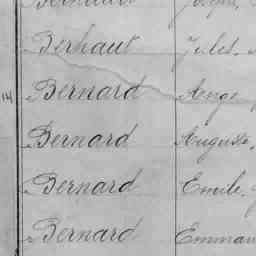 Berhaut Jules.
14 Bernard Ange
Bernard Auguste.
Bernard Emile.
Bernard Emman